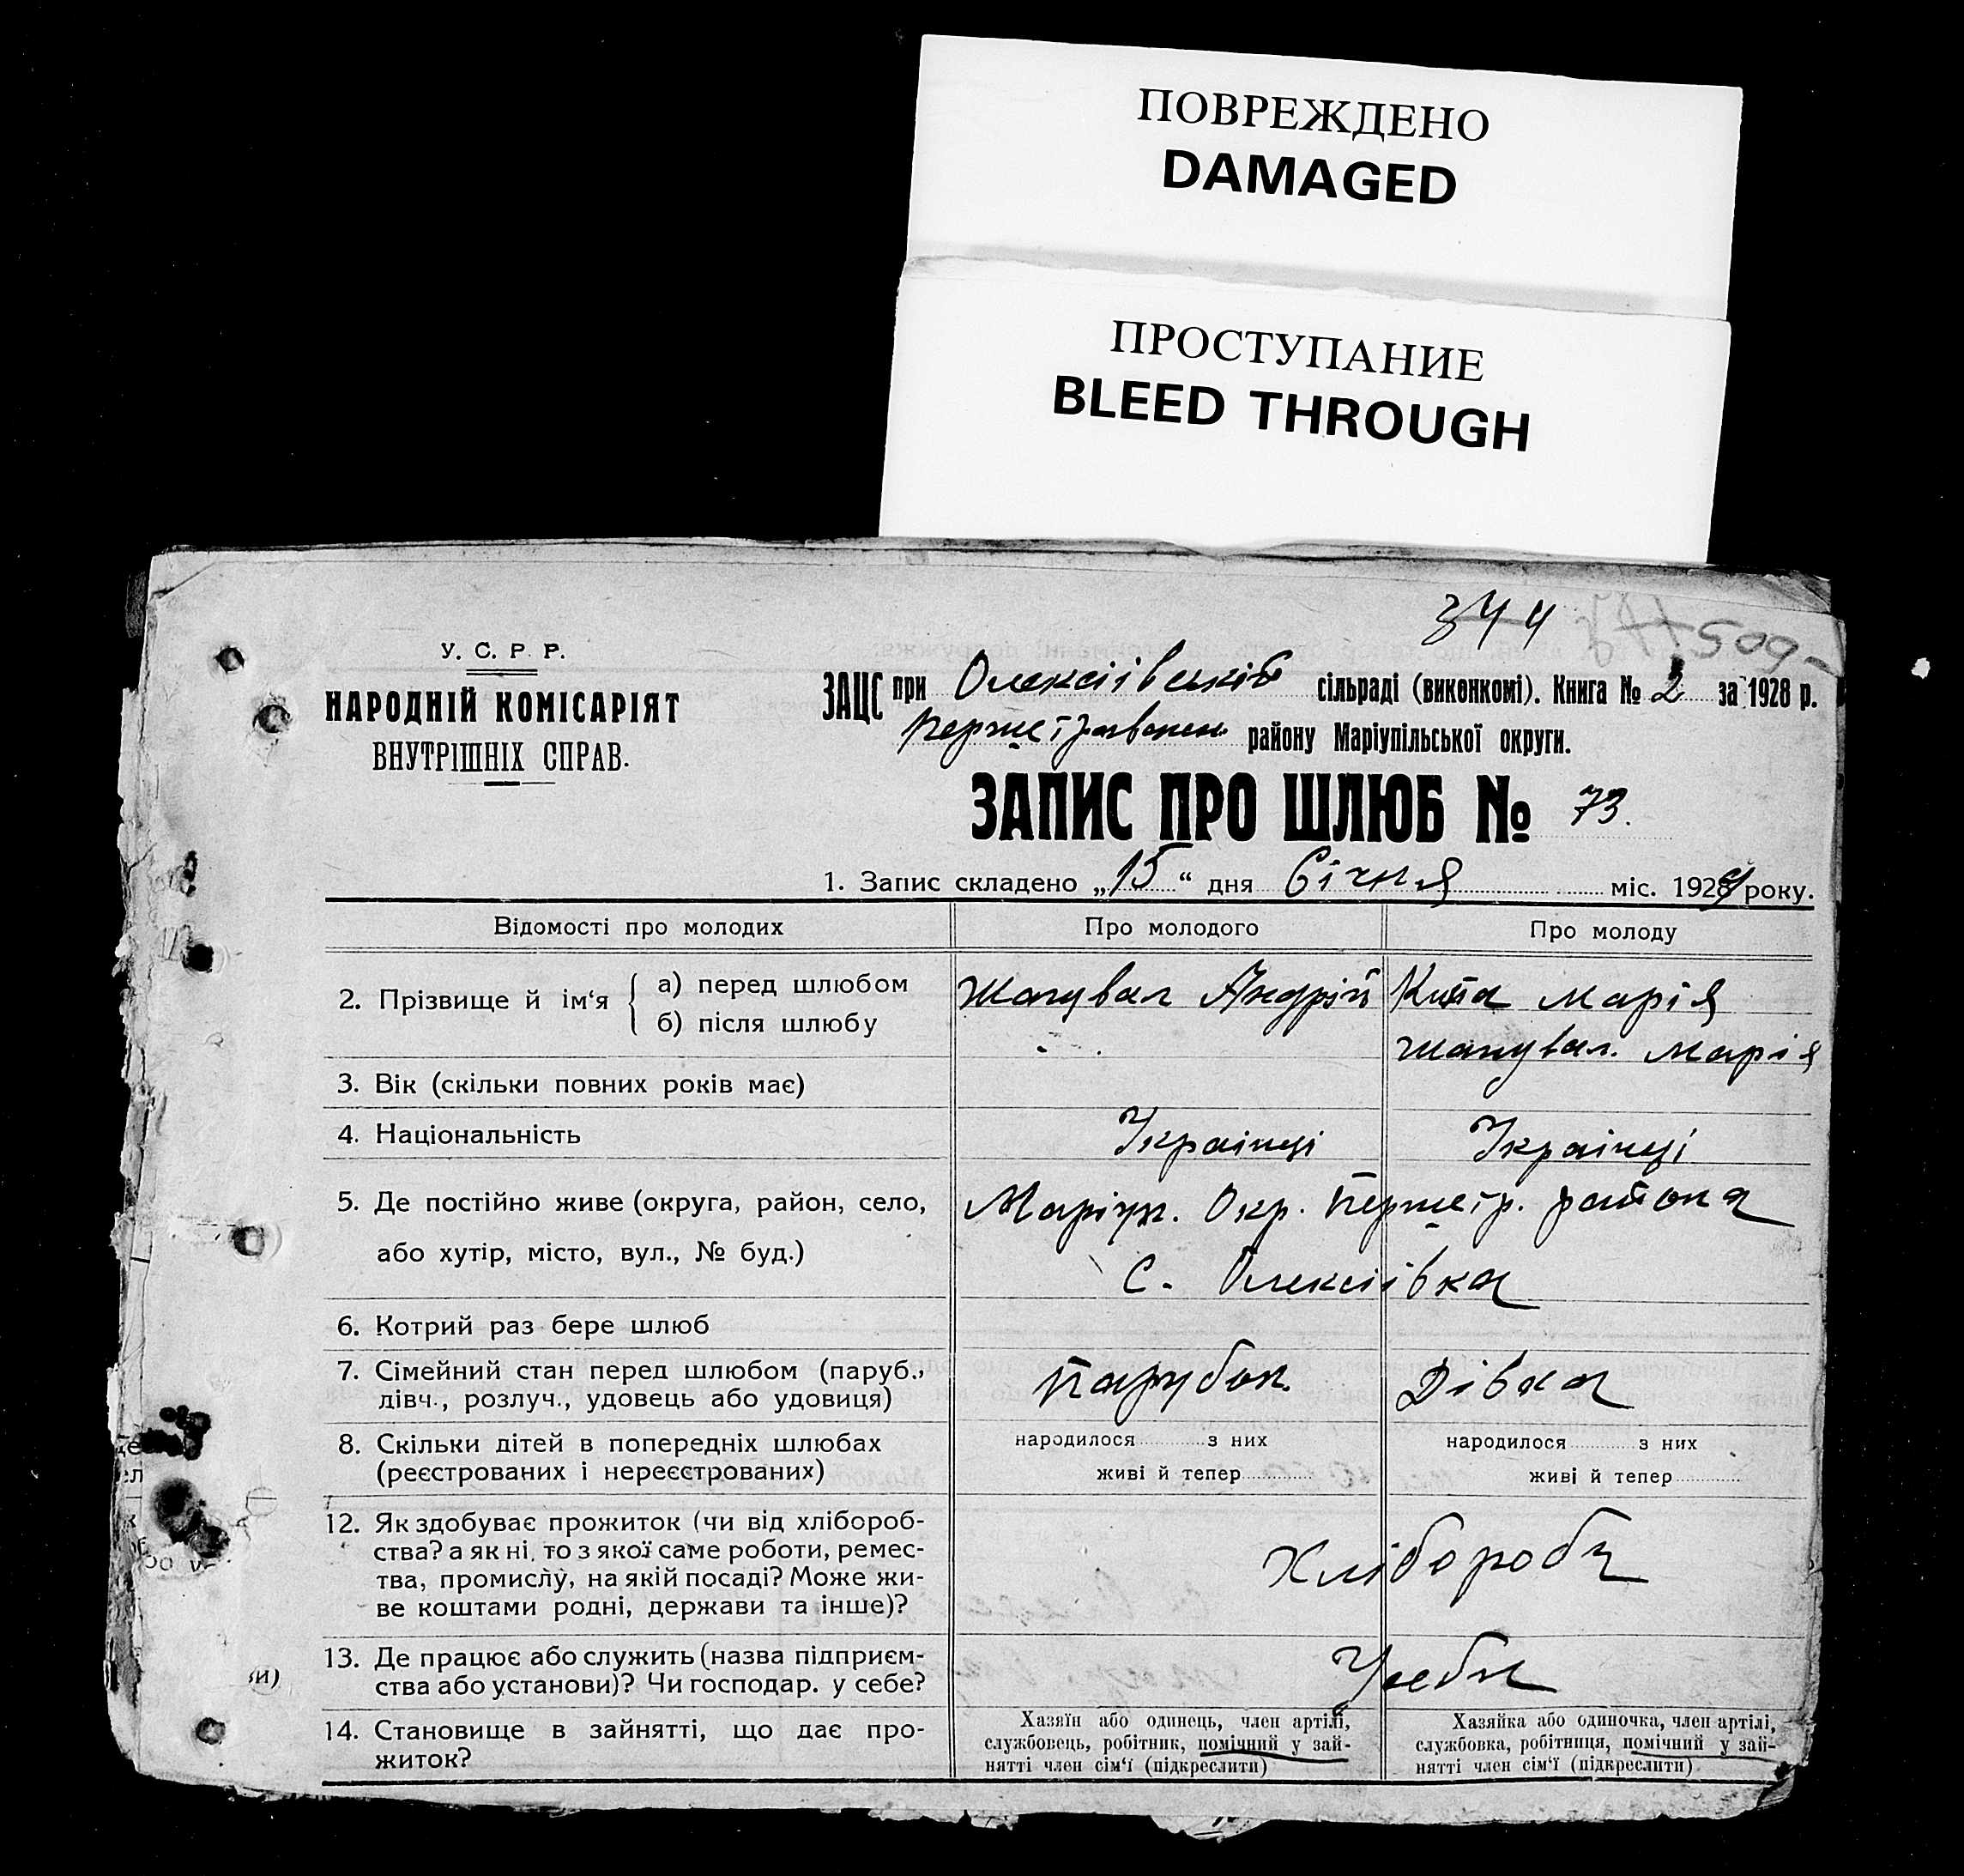 ПОВРЕЖДЕНО
DAMAGED
ПРОСТУПАНИЕ
BLEED THROUGH
344 509-
У. С. Р. Р.
НАРОДНІЙ КОМІСАРІЯТ
ВНУТРІШНІХ СПРАВ.
ЗАЦС при Олексіівській сільраді (виконкомі). Книга № 2 за 1928 р.
району Маріупільської округи.
ЗАПИС ПРО ШЛЮБ № 73.
1. Запис складено „15“ дня Січня міс. 1929 року.
Відомості про молодих Про молодого Про молоду
2. Прізвище й ім‘я { а) перед шлюбом Шаповал Андрій Марія
б) після шлюбу Шаповал. Марія
3. Вік (скільки повних років має)
4. Національність Украінці Украінці
5. Де постійно живе (округа, район, село, Маріуп. Окр. Першотр. района
або хутір, місто, вул., № буд.) С. Олексіівка
6. Котрий раз бере шлюб
7. Сімейний стан перед шлюбом (паруб., Парубок. Дівка
дівч., розлуч., удовець або удовиця)
8. Скільки дітей в попередніх шлюбах народилося з них народилося з них
(реєстрованих і нереєстрованих) живі й тепер живі й тепер
12. Як здобуває прожиток (чи від хлібороб-
ства? а як ні, то з якої саме роботи, ремес- Хлібороби
тва, промислу, на якій посаді? Може жи-
ве коштами родні, держави та інше)?
13. Де працює або служить (назва підприєм- У себе
ства або установи)? Чи господар. у себе?
14. Становище в зайнятті, що дає про-
житок?
Хазяїн або одинець, член артілі,
службовець, робітник, помічний у зай-
нятті член сім‘ї (підкреслити)
Хазяйка або одиночка, член артілі,
службовка, робітниця, помічний у зай-
нятті член сім‘ї (підкреслити)